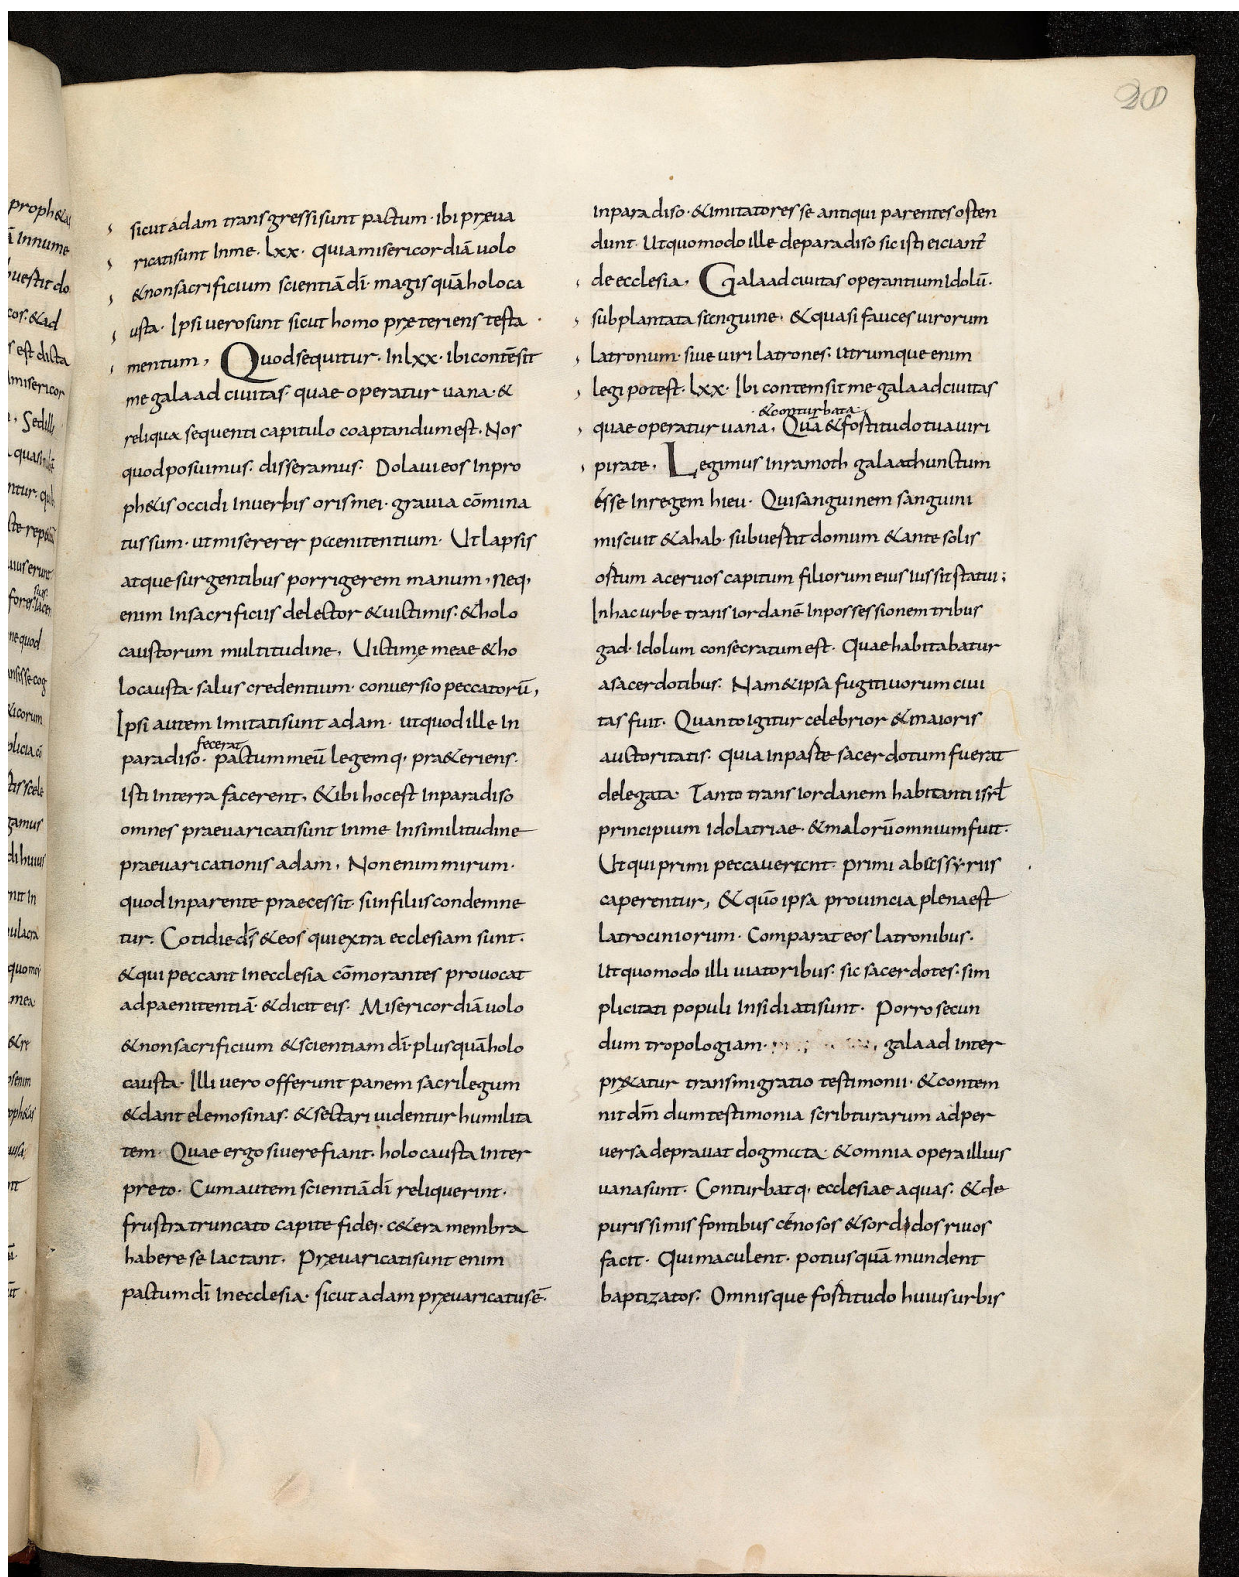 20
sicut adam transgressi sunt pactum· ibi præua
ricati sunt In me· lxx· quia misericordiā uolo
& non sacrificium scientiā dī· magis quā holoca
usta· Ipsi uero sunt sicut homo præteriens testa
mentum, Quod sequitur· In lxx· ibi contēsit
me galaad ciuitas· quae operatur uana· &
reliqua sequenti capitulo coaptandum est· Nos
quod posuimus· disseramus· Dolaui eos In pro
ph&is occidi In uerbis oris mei· grauia cōmina
tus sum· ut misererer pęnitentium· Ut lapsis
atque surgentibus porrigerem manum, neq,
enim In sacrificiis delector & uictimis· & holo
caustorum multitudine, Uictimę meae & ho
locausta· salus credentium· conuersio peccatorū,
Ipsi autem Imitati sunt adam· ut quod ille In
fecerat
paradiso· pactum meū legemq, pra&eriens·
Isti In terra facerent, & ibi hoc est In paradiso
omnes praeuaricati sunt In me In similitudine
praeuaricationis adam, Non enim mirum·
quod In parente praecessit si In filiis condemne
tur· Cotidie ds̄ & eos qui extra ecclesiam sunt·
& qui peccant In ecclesia cōmorantes prouocat
ad paenitentiā & dicit eis· Misericordiā uolo
& non sacrificium & scientiam dī· plus quā holo
causta· Illi uero offerunt panem sacrilegum
& dant elemosinas· & sectari uidentur humilita
tem· Quae ergo si uere fiant· holocausta Inter
preto· Cum autem scientiā dī reliquerint·
frustra truncato capite fidei· c&era membra
habere se Iactant· Præuaricati sunt enim
pactum dī In ecclesia· sicut adam præuaricatus ē·
In paradiso· & Imitatores se antiqui parentes osten
dunt· Ut quomodo ille de paradiso sic isti eiciant̄
de ecclesia, Galaad ciuitas operantium Idolū·
subplantata sanguine· & quasi fauces uirorum
latronum· siue uiri latrones· utrumque enim
legi potest· lxx· Ibi contemsit me galaad ciuitas
& conturbata
quae operatur uana, Quā & fortitudo tua uiri
pirate, Legimus In ramoth galaath unctum
esse In regem hieu· Qui sanguinem sanguini
miscuit & ahab· subuertit domum & ante solis
ortum aceruos capitum filiorum eius iussit statui;
In hac urbe trans Iordanē In possessionem tribus
gad· Idolum consecratum est· Quae habitabatur
a sacerdotibus· Nam & ipsa fugitiuorum ciui
tas fuit· Quanto igitur celebrior & maioris
auctoritatis· quia In parte sacerdotum fuerat
delegata· Tanto trans Iordanem habitanti isrl̄
principium Idolatriae· & malorū omnium fuit·
Ut qui primi peccauerant· primi ab assyriis
caperentur, & quō ipsa prouincia plena est
latrociniorum· Comparat eos latronibus·
Ut quomodo illi uiatoribus· sic sacerdotes· sim
plicitati populi Insidiati sunt· Porro secun
dum tropologiam· galaad Inter
pr&atur transmigratio testimonii· & contem
nit dm̄ dum testimonia scribturarum ad per
uersa deprauat dogmata· & omnia opera illius
uana sunt· Conturbatq, ecclesiae aquas· & de
purissimis fontibus cenosos & sordidos riuos
facit· Qui maculent· potius quā mundent
baptizatos· Omnisque fortitudo huius urbis